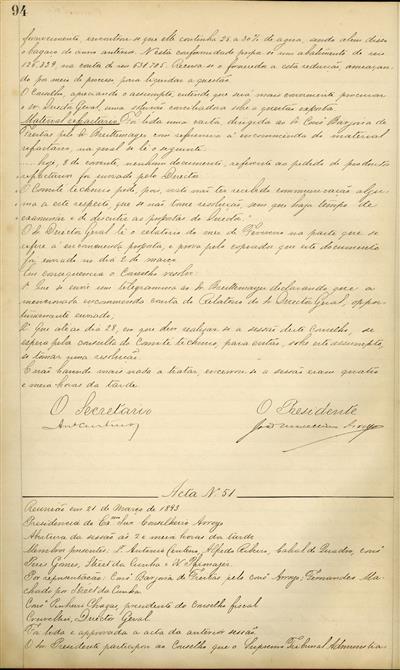 94
fornecimento, encontrou-se que elle continha 28 a 30% de agua, sendo alem disso
o bagaço do anno anterior. N'esta conformidade propoz-se um abatimento de reis
na conta de reis 631.705. Recusa-se o fornecedor a esta reducção, ameaçan-
do por meio de processo para liquidar a questão.
O Conselho, apreciando o assumpto, entende que será mais conveniente procurar
o sr. Director Geral, uma solução conciliadora sobre a questão exposta.
Material refractario. Foi lida uma carta, dirigida ao Sr. Consº
Freitas pelo Sr. com referencia á encommenda de material
refractario, na qual se lê o seguinte:
hoje, 8 do corrente, nenhum documento, referente ao pedido de productos
refractarios foi enviado pelo Director.
O Comité technico pede, pois, visto não ter recebido communicação algu-
ma a este respeito, que se não tome resolução, sem que haja tempo de
examinar e de discutir as propostas do Director."
O Sr. Director Geral lê o relatorio do mez de Fevereiro na parte que se
refere á encommenda proposta, e prova pelo copiador que este documento
foi enviado no dia 2 de março.
Em consequencia o Conselho resolve:
1º Que se envie um telegramma ao Sr. declarando que a
mencionada encommenda consta do Relatorio do Sr. Director Geral, oppor-
tunamente enviado;
2º Que até ao dia 28, em que deve realizar-se a sessão deste Conselho, se
espera pela consulta do Comité technico, para então, sobre este assumpto,
se tomar uma resolução.
E não havendo mais nada a tratar, encerrou-se a sessão eram quatro
e meia horas da tarde.
O Secretario
O Presidente
Acta Nº 51
Reunião em 21 de Março de 1893
Presidencia do Exmo Snr. Conselheiro Arroyo
Abertura da sessão ás 2 e meia horas da tarde
Membros presentes: Srs. Antonio Centeno, Alfredo Ribeiro, Cabral de Quadros, Consº
Pires Gomes, Street da Cunha e
Por representação: Consº de Freitas pelo Consº Arroyo; Fernandes Ma-
chado por Street da Cunha.
Consº Pinheiro Chagas, presidente do Conselho fiscal
Director Geral
Foi lida e approvada a acta da anterior sessão.
O Sr. Presidente participou ao Conselho que o Supremo Tribunal Administra-